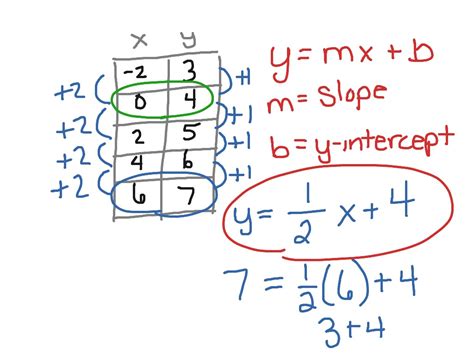 x y
-2 3
0 4
2 5
4 6
6 7
+2
+2
+2
+2
+1
+1
+1
+1
y = mx + b
m = Slope
b = y-intercept
y = 1/2 x + 4
7 = 1/2 (6) + 4
3 + 4